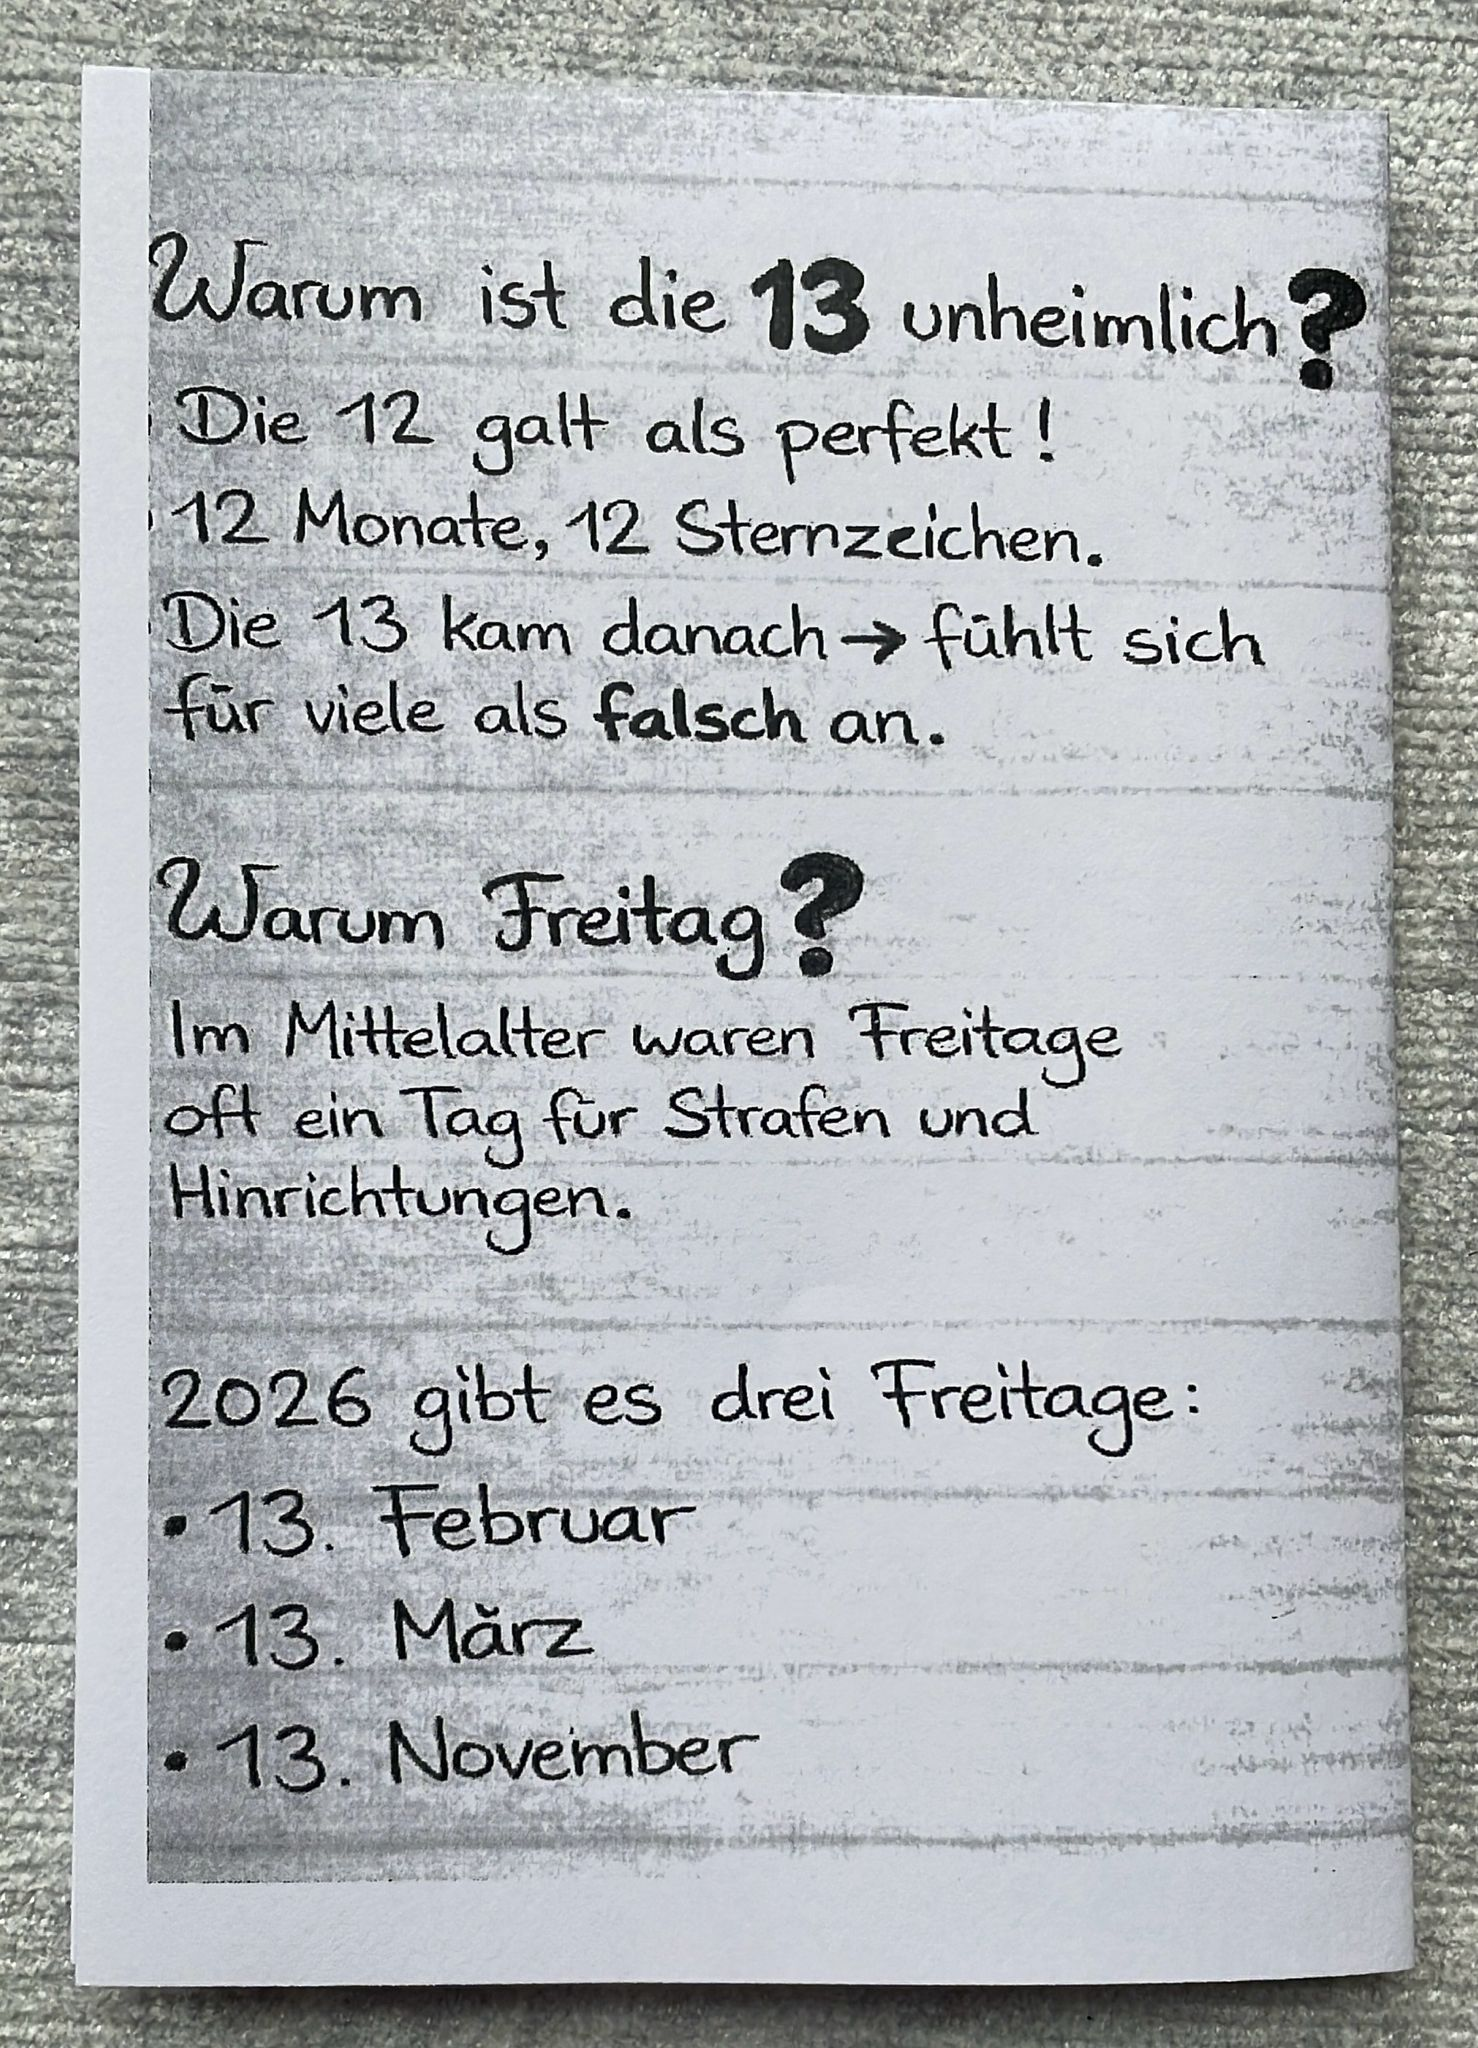 Warum ist die 13 unheimlich?
Die 12 galt als perfekt!
12 Monate, 12 Sternzeichen.
Die 13 kam danach → fühlt sich
für viele als falsch an.
Warum Freitag?
Im Mittelalter waren Freitage
oft ein Tag für Strafen und
Hinrichtungen.
2026 gibt es drei Freitage:
• 13. Februar
• 13. März
• 13. November